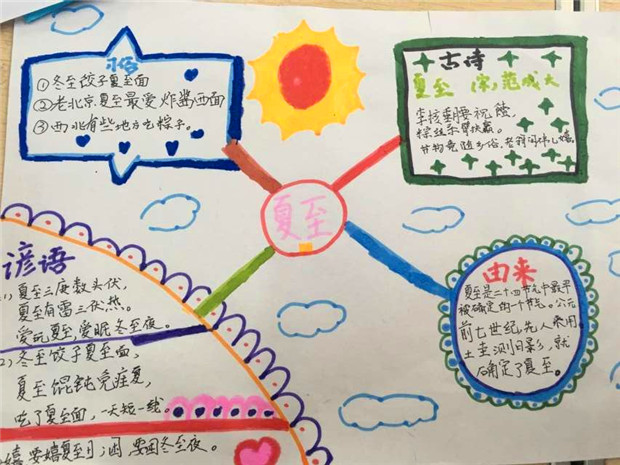 习俗
①冬至饺子夏至面
②老北京夏至最爱炸酱面
③西北有些地方吃粽子。
古诗
夏至 (宋)范成大
李核垂腰祝饐
粽丝系臂扶羸
节物竞随乡俗,老翁闲伴儿嬉
夏至
谚语
夏至三庚数头伏
夏至有雷三伏热。
爱玩夏至,爱眠冬至夜。
2)冬至饺子夏至面,
夏至馄饨免疰夏,
吃了夏至面,一天短一线。
嬉要嬉夏至日,困要困冬至夜。
由来
夏至是二十四节气中最早
被确定的一个节气。公元
前七世纪,先人采用
土圭测日影,就
确定了夏至。